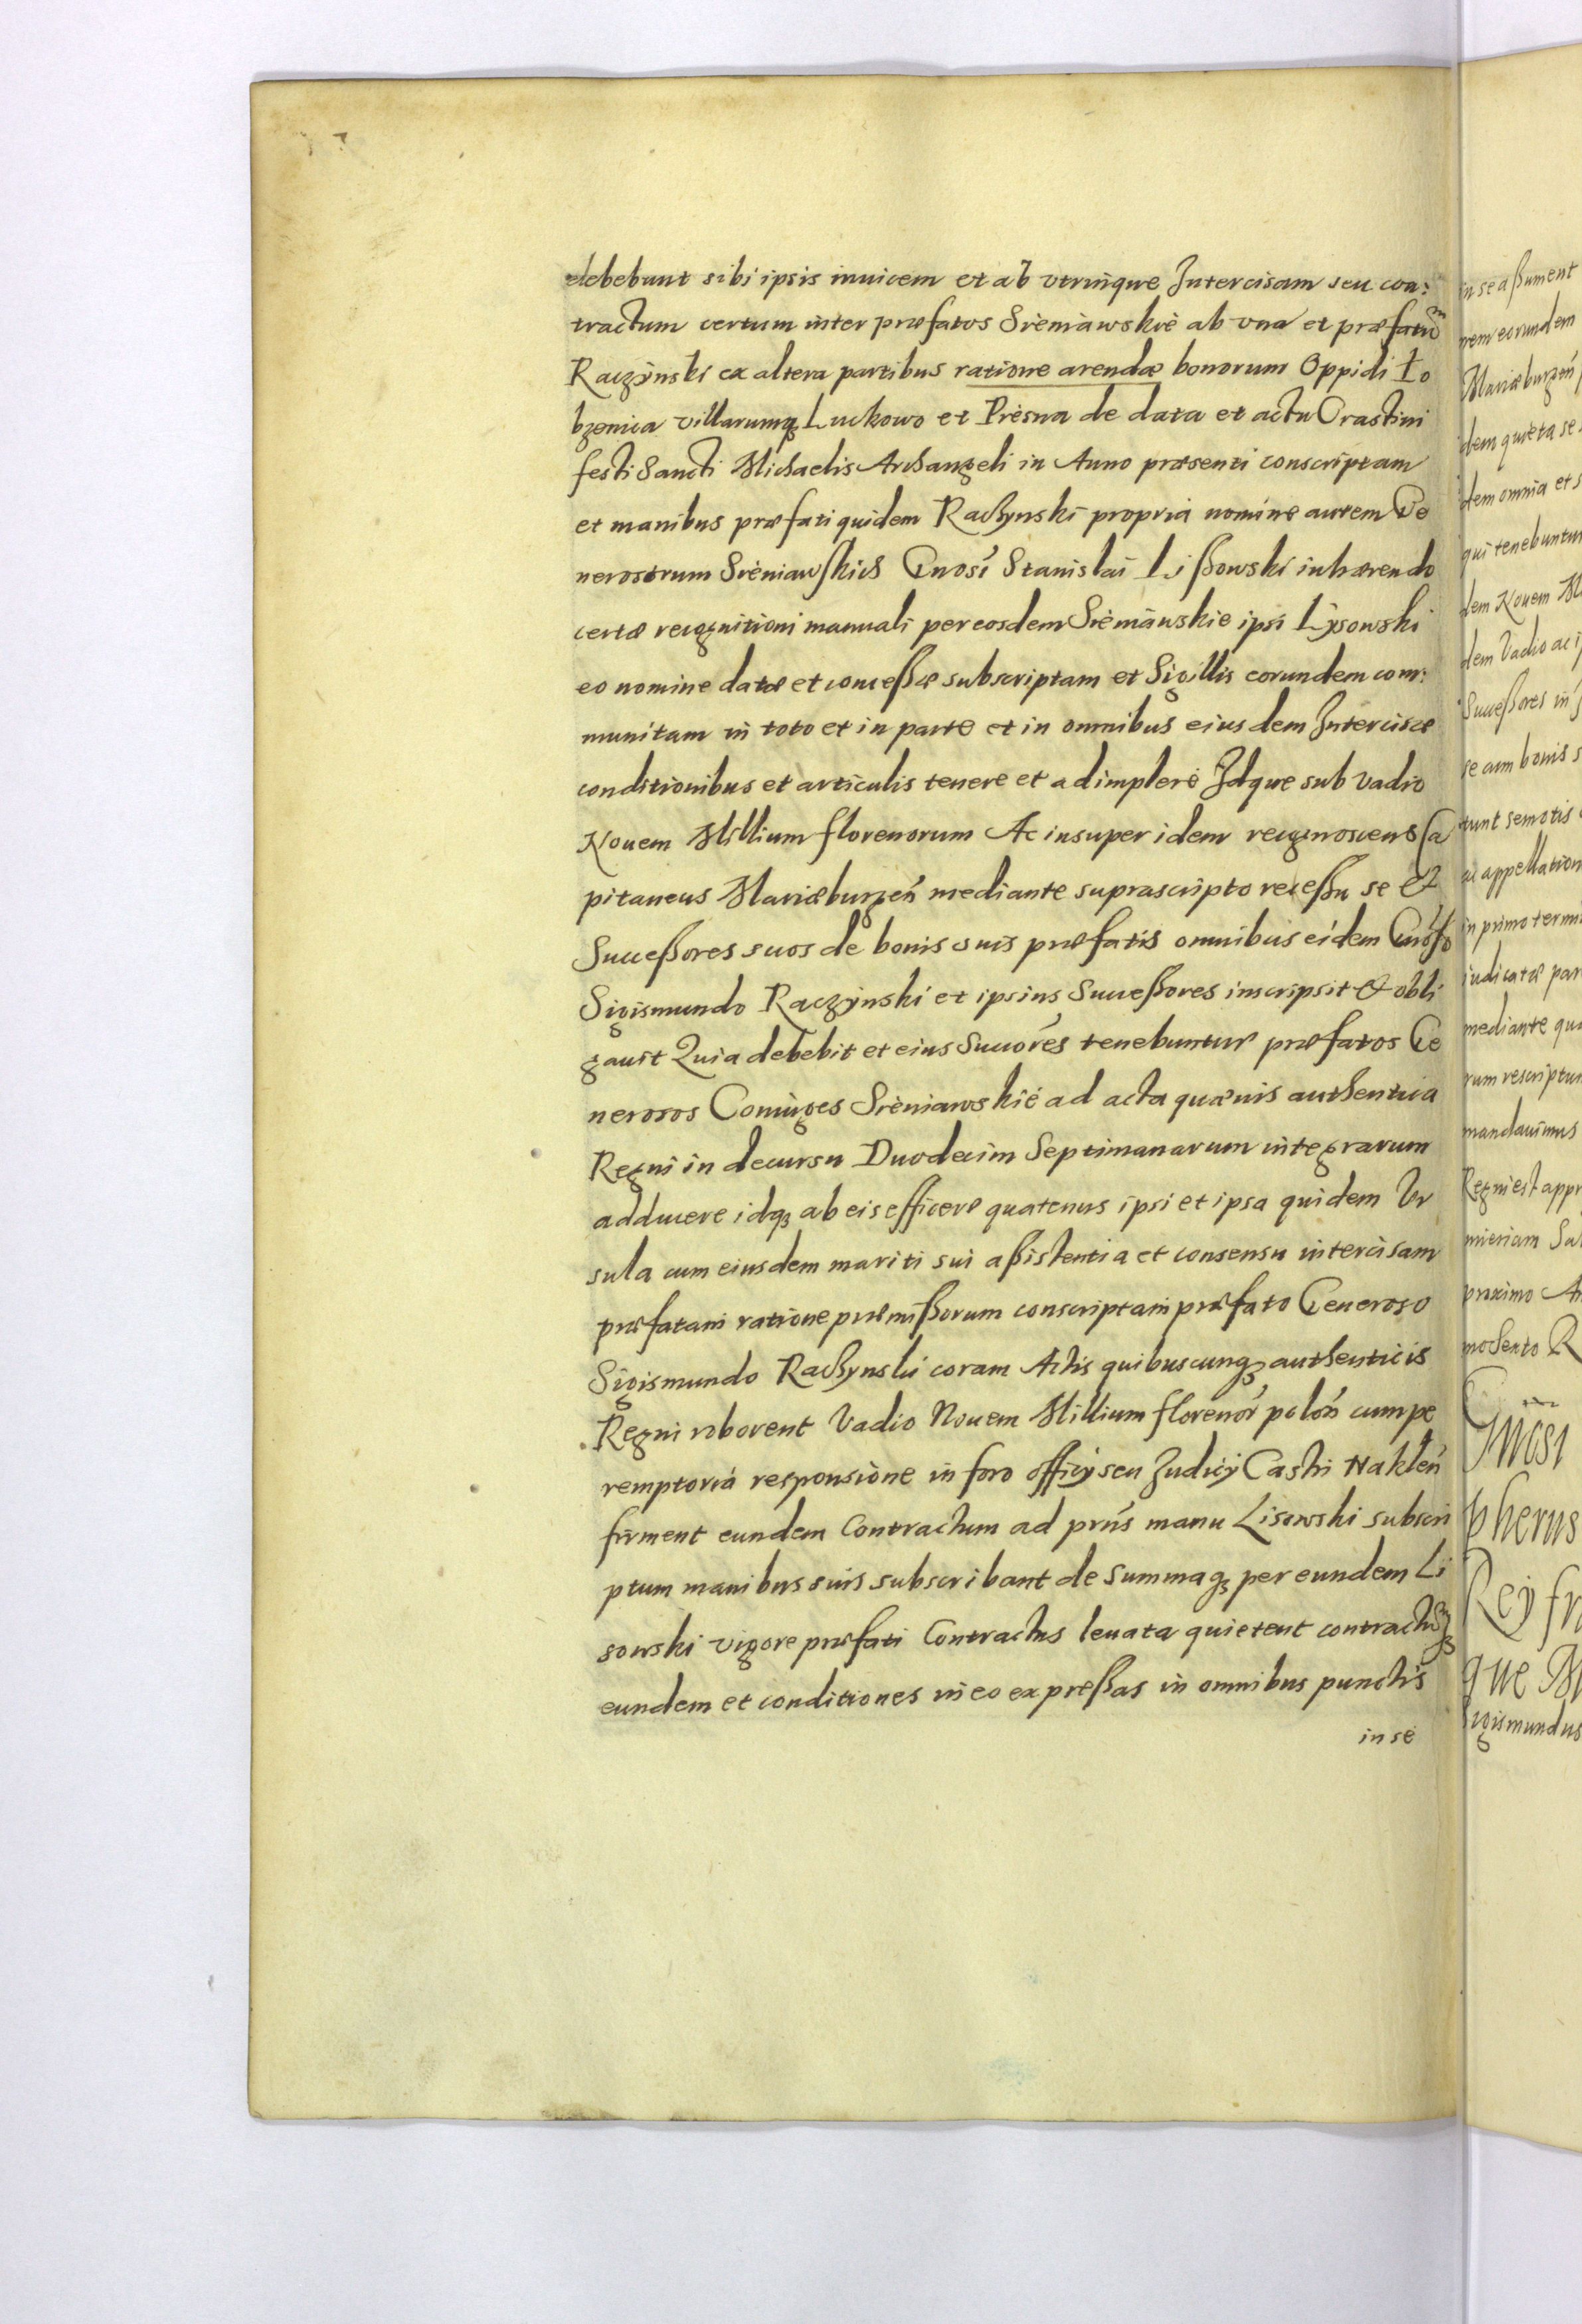 debebunt sibi ipsis inuicem et ab vtrinque Intercisam seu con:
tractum certum inter præfatos Sieniawskie ab vna et præfatum
Raczÿnski ex altera partibus ratione arendæ bonorum Oppidi Ło
bzenica villarumqꝫ Luckowo et Piesna de data et actu Crastini
festi Sancti Michaelis Archangeli in Anno præsenti conscriptam
et manibus præfati quidem Raczynski propria nomine autem Ge
nerosorum Sieniawskich Gnosi Stanislai Lißowski inhærendo
certæ recognitioni manuali per eosdem Sieniawskie ipsi Lÿsowski
eo nomine datæ et conceßæ subscriptam et Sigillis eorundem com:
munitam in toto et in parte et in omnibus eiusdem Intercisæ
conditionibus et articulis tenere et adimplere Idque sub vadio
Nouem Millium florenorum Ac insuper idem recognoscens Ca
pitaneus Mariæburgen̄ mediante suprascripto receßu se et
Succeßores suos de bonis suis præfatis omnibus eidem Gnoso
Sigismundo Raczÿnski et ipsius Succeßores inscripsit & obli
gauit Quia debebit et eius Succores tenebuntur præfatos Ge
nerosos Coniuges Sieniawskie ad acta quæuis authentica
Regni in decursu Duodecim Septimanarum integrarum
adducere idqꝫ ab eis efficere quatenus ipsi et ipsa quidem Vr
sula cum eiusdem mariti sui aßistentia et consensu intercisam
præfatam ratione præmißorum conscriptam præfato Generoso
Sigismundo Raczynski coram Actis quibuscunqꝫ authenticis
Regni roborent Vadio Nouem Millium florenor̄ polon̄ cum pe
remptoria responsione in foro officÿ seu Iudicÿ Castri Naklen̄
firment eundem Contractum ad priūs manu Lisowski subscri
ptum manibus suis subscribant de summaqꝫ per eundem Li
sowski vigore præfati Contractus leuata quietent contractūqꝫ
eundem et conditiones in eo expreßas in omnibus punctis
in se
in se aßument
nem eorundem
Mariæburgen̄
dem quieta se
dem omnia et s
qui tenebuntur
dem Nouem M
dem Vadio ac i
Succeßores in
se cum bonis s
tunt semotis
ac appellation
in primo termi
iudicatæ par
mediante qu
rum rescriptum
mandauimus
Regni est appr
mieniam Sa
proximo A
R
pherus
Reÿ fr
que M
Sigismundus